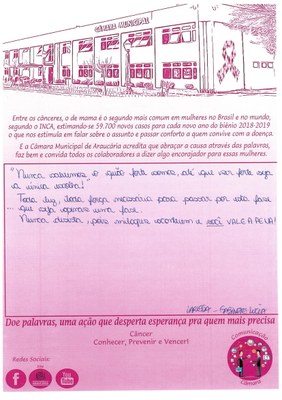 CÂMARA MUNICIPAL
Entre os cânceres, o de mama é o segundo mais comum em mulheres no Brasil e no mundo,
segundo o INCA, estimando-se 59.700 novos casos para cada novo ano do biênio 2018-2019
o que nos estimula em falar sobre o assunto e passar conforto a quem convive com a doença.
E a Câmara Municipal de Araucária acredita que abraçar a causa através das palavras,
faz bem e convida todos os colaboradores a dizer algo encorajador para essas mulheres.
"Nunca sabemos o quão forte somos, até que ser forte seja
a única escolha!"
Toda luz, toda força necessária para passar por esta fase
que seja apenas uma fase.
Nunca desista, pois milagres acontecem e você VALE A PENA!
Doe palavras, uma ação que desperta esperança pra quem mais precisa
Câncer
Conhecer, Prevenir e Vencer!
Redes Sociais:
You
Tube
Comunicação
Câmara